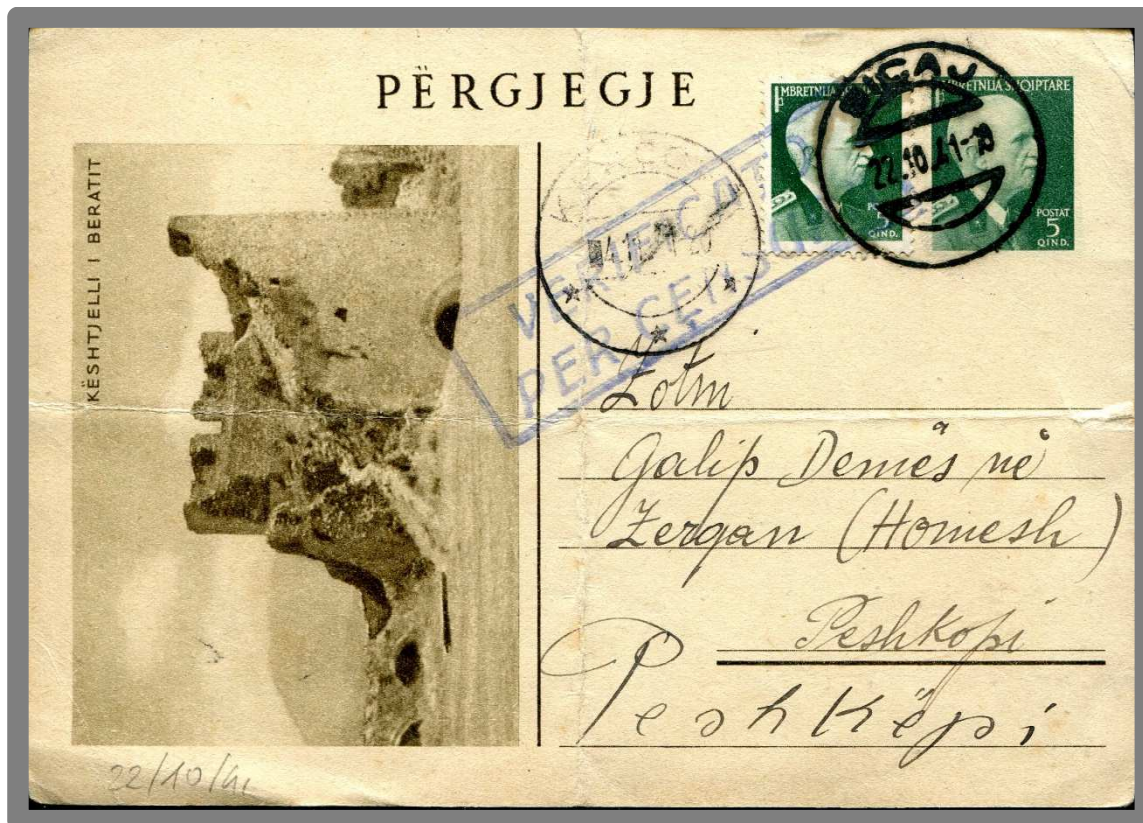 PËRGJEGJE
KËSHTJELLI I BERATIT
MBRETNIJA
POSTAT
5
QIND.
MBRETNIJA SHQIPTARE
POSTAT
5
QIND.
BICAJ
22.10.41-10
VERIFICATO
PER CENSURA
Zotni
Galip Demës në
Zergan (Homesh)
Peshkopi
Peshkëpi
22/10/41